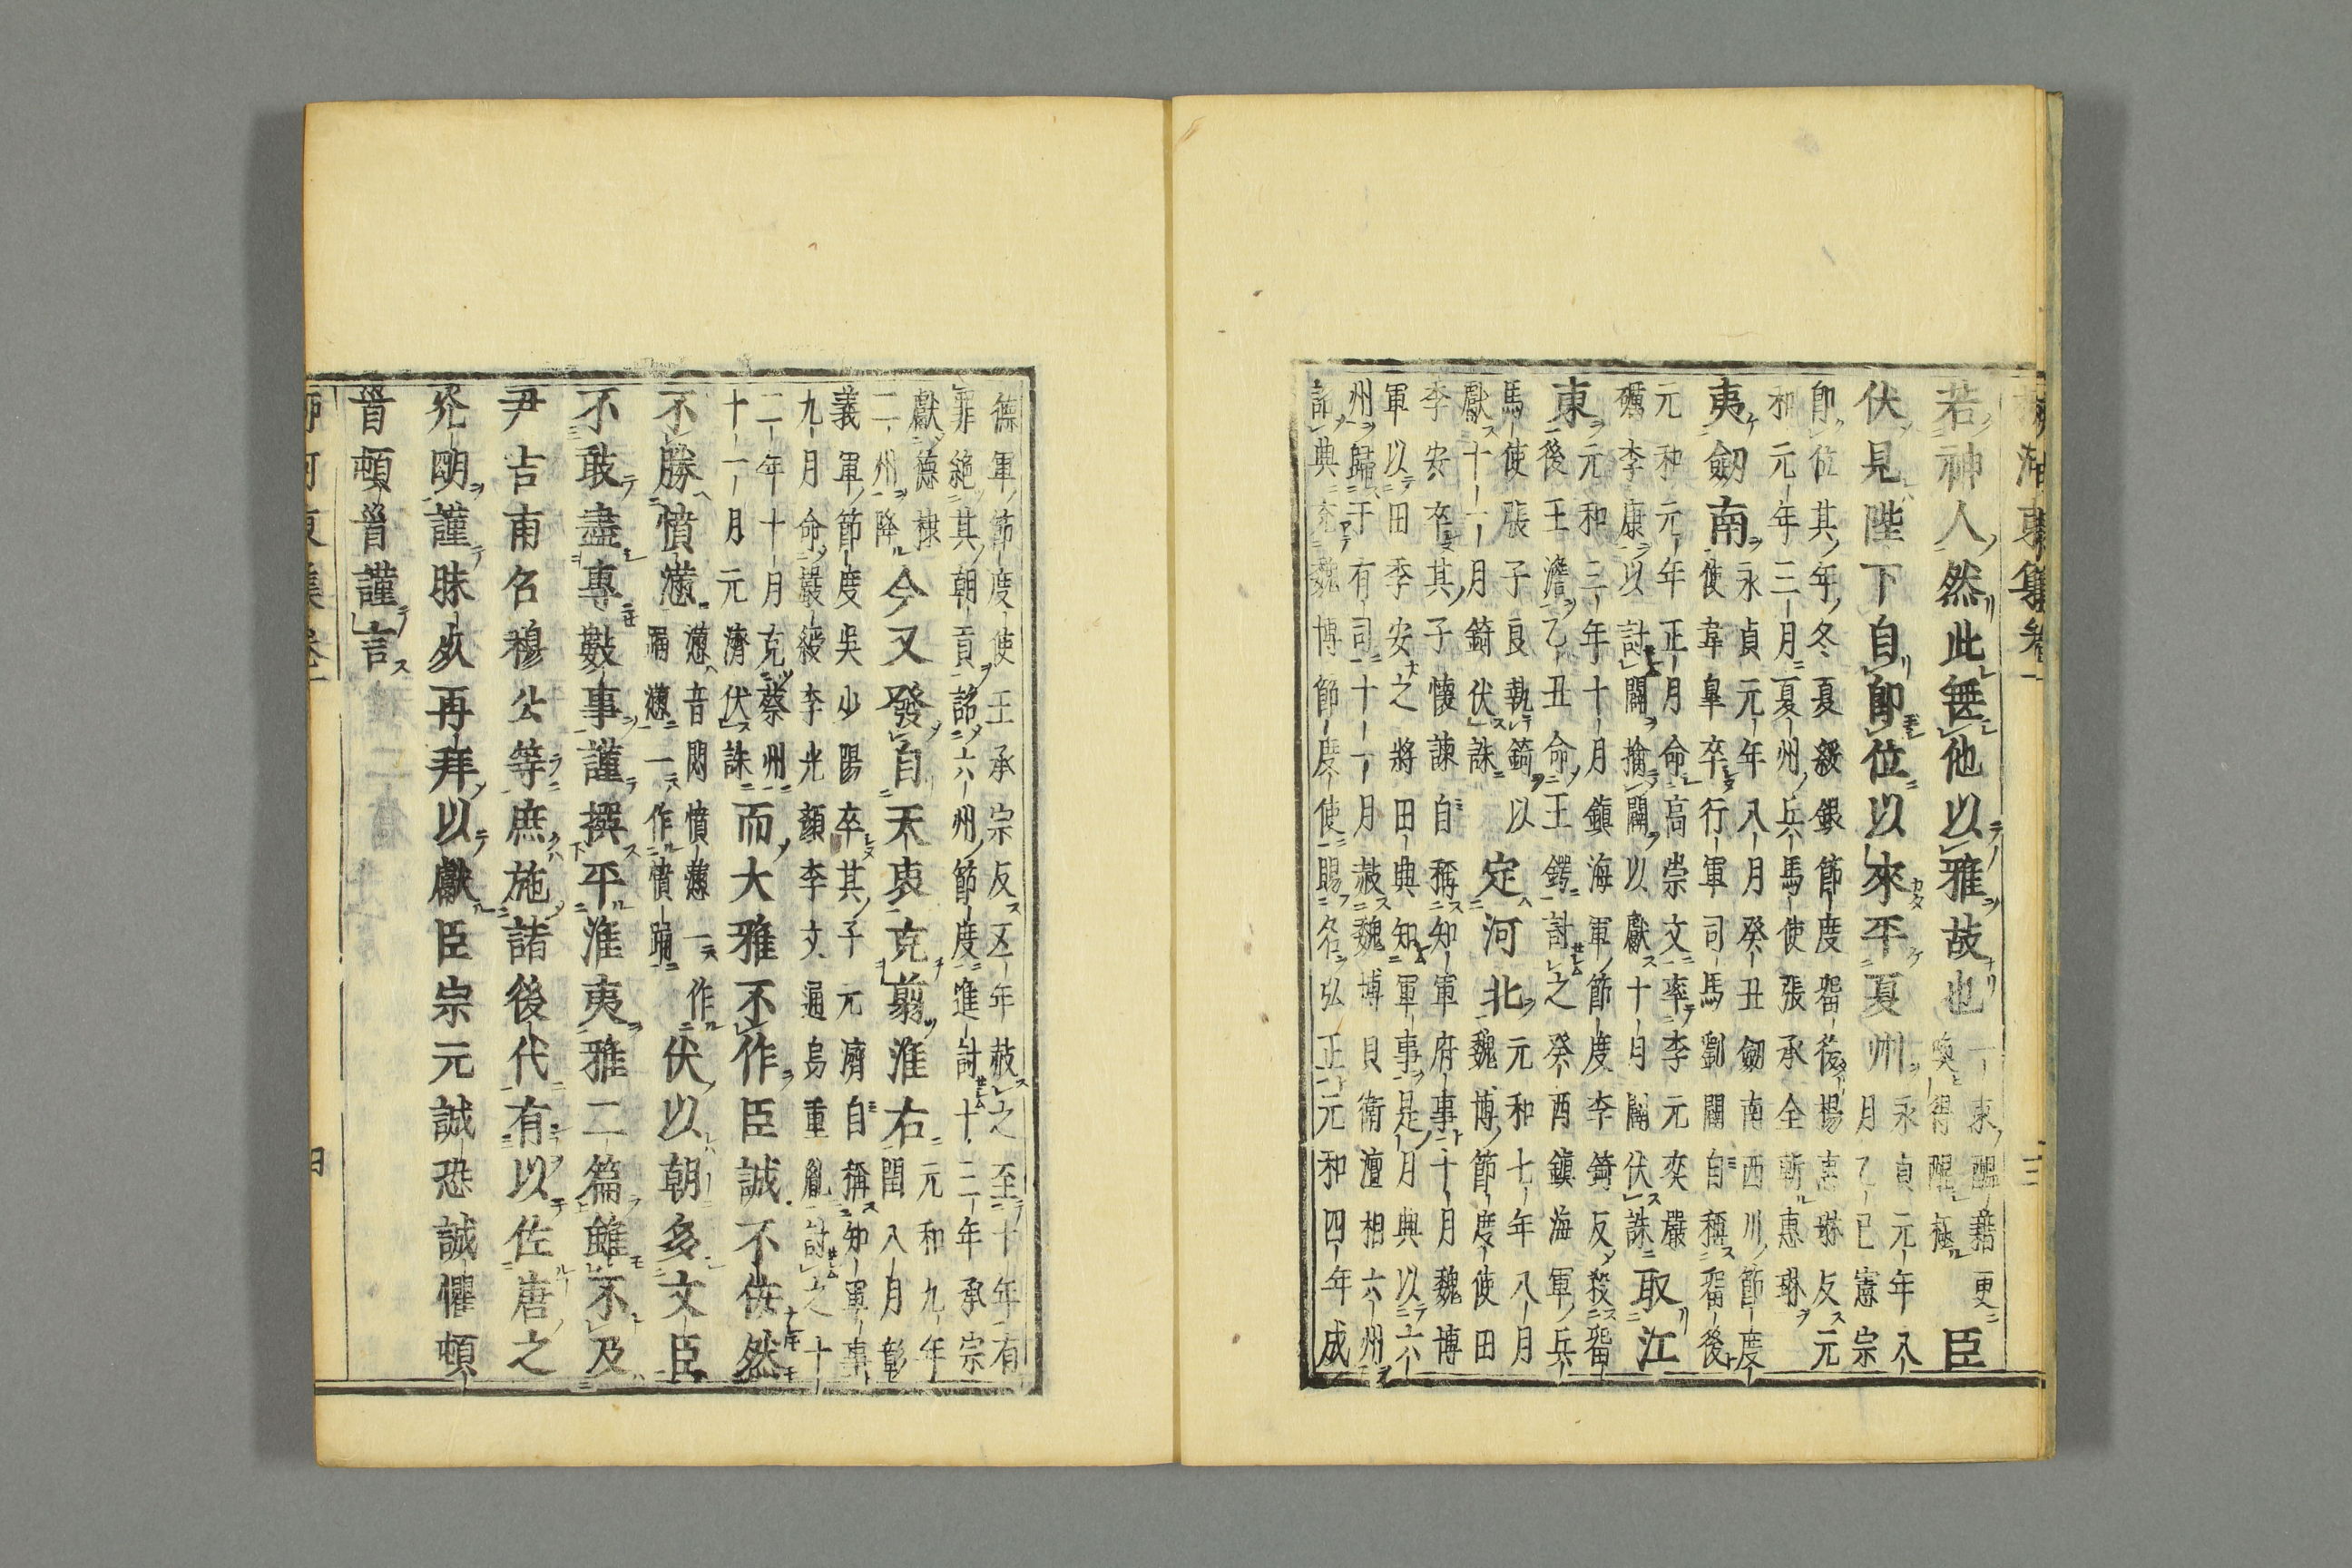 若神人然此無他以雅故也
喚得醒極
臣
伏見陛下自即位以來平夏州
永貞元年八
月乙巳憲宗
即位其年冬夏綏銀節度留後楊惠琳反元
和元年三月夏州兵馬使張承全斬惠琳
夷劒南
永貞元年八月癸丑劒南西川節度
使韋皐卒行軍司馬劉闢自稱留後
元和元年正月命高崇文率李元奕嚴
礪李康以討闢擒闢以獻十月闢伏誅
取江
東
元和三年十月鎮海軍節度李錡反殺留
後王澹乙丑命王鍔討之癸酉鎮海軍兵
馬使張子良執錡以
獻十一月錡伏誅
定河北
元和七年八月
魏博節度使田
季安卒其子懷諫自稱知軍府事十月魏博
軍以田季安之將田典知軍事是月與以六
州歸于有司十一月赦魏博貝衛澶相六州
詔典充魏博節度使賜名弘正元和四年成
德軍節度使王承宗反五年赦之至十年有
罪絶其朝貢詔六州節度進討十二年承宗
獻德棣
二州降
今又發自天衷克翦淮右
元和九年
閏八月彰
義軍節度吳少陽卒其子元濟自稱知軍事
九月命嚴綬李光顏李文通烏重胤討之十
二年十月克蔡州
十一月元濟伏誅
而大雅不作臣誠不佞然
不勝憤懣
懣音悶憤懣一作
漏懣一作憤踊
伏以朝多文臣
不敢盡專數事謹撰平淮夷雅二篇雖不及
尹吉甫召穆公等庶施諸後代有以佐唐之
光明謹昧死再拜以獻臣宗元誠恐誠懼頓
首頓首謹言
河東集卷一